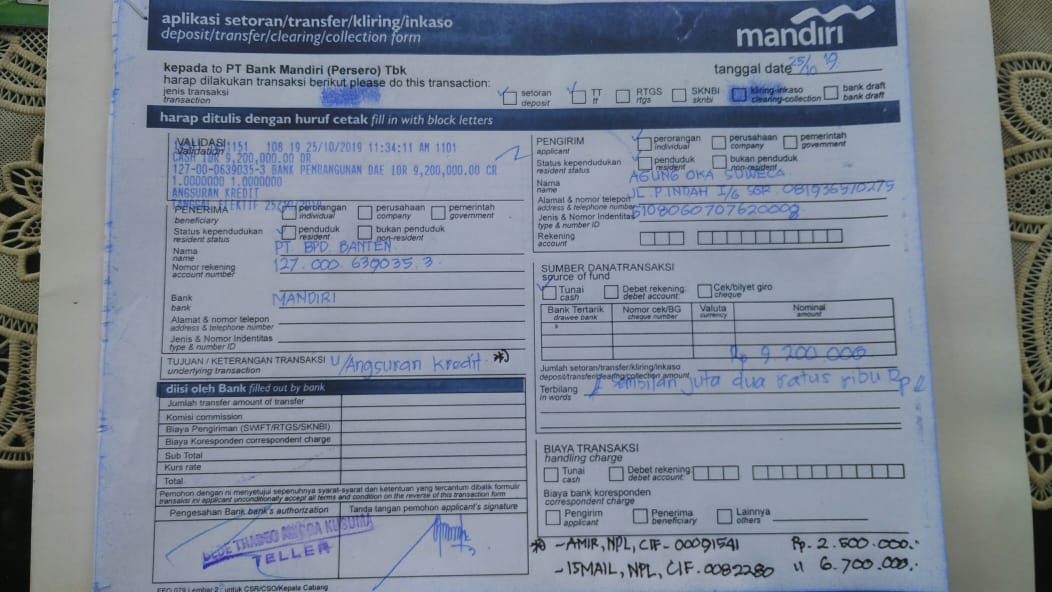 aplikasi setoran/transfer/kliring/inkaso
deposit/transfer/clearing/collection form
mandiri
kepada to PT Bank Mandiri (Persero) Tbk
harap dilakukan transaksi berikut please do this transaction:
tanggal date 25/10 19
jenis transaksi
transaction
setoran
deposit
TT
tt
RTGS
rtgs
SKNBI
sknbi
kliring-inkaso
clearing-collection
bank draft
bank draft
harap ditulis dengan huruf cetak fill in with block letters
VALIDASI
Validation
1151 108 19 25/10/2019 11:34:11 AM 1101
CASH IDR 9,200,000.00 DR
127-00-0639035-3 BANK PEMBANGUNAN DAE IDR 9,200,000.00 CR
1.0000000 1.0000000
ANGSURAN KREDIT
TANGGAL EFEKTIF
PENERIMA
beneficiary
perorangan
individual
perusahaan
company
pemerintah
government
Status kependudukan
resident status
penduduk
resident
bukan penduduk
non-resident
Nama
name
PT. BPD BANTEN
Nomor rekening
account number
127.000.639035.3
Bank
bank
MANDIRI
Alamat & nomor telepon
address & telephone number
Jenis & Nomor Indentitas
type & number ID
TUJUAN / KETERANGAN TRANSAKSI
underlying transaction
U/Angsuran Kredit *)
diisi oleh Bank filled out by bank
Jumlah transfer amount of transfer
Komisi commission
Biaya Pengiriman (SWIFT/RTGS/SKNBI)
Biaya Koresponden correspondent charge
Sub Total
Kurs rate
Total
Pemohon dengan ni menyetujui sepenuhnya syarat-syarat dan ketentuan yang tercantum dibalik formulir
transaksi ini applicant unconditionally accept all terms and condition on the reverse of this transaction form
Pengesahan Bank bank's authorization
Tanda tangan pemohon applicant's signature
TELLER
Lembar 2 : untuk CSR/CSO/Kepala Cabang
PENGIRIM
applicant
perorangan
individual
perusahaan
company
pemerintah
government
Status kependudukan
resident status
penduduk
resident
bukan penduduk
non-resident
Nama
name
AGUNG OKA SUWECA
Alamat & nomor telepon
address & telephone number
JL. P. INDAH I/6 SGR 081936570275
Jenis & Nomor Indentitas
type & number ID
5108060707620002
Rekening
account
SUMBER DANATRANSAKSI
source of fund
Tunai
cash
Debet rekening:
debet account:
Cek/bilyet giro
cheque
Bank Tertarik
drawee bank
Nomor cek/BG
cheque number
Valuta
currency
Nominal
amount
Rp 9.200.000
Jumlah setoran/transfer/kliring/inkaso
deposit/transfer/clearing/collection amount
Terbilang
in words
Sembilan juta dua ratus ribu Rp
BIAYA TRANSAKSI
handling charge
Tunai
cash
Debet rekening:
debet account:
Biaya bank koresponden
correspondent charge
Pengirim
applicant
Penerima
beneficiary
Lainnya
others
*) - AMIR, NPL, CIF- 00091541 Rp. 2.500.000.-
- ISMAIL, NPL, CIF. 0082280 " 6.700.000.-